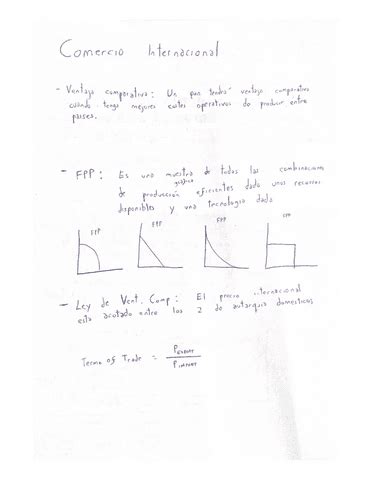 Comercio Internacional
- Ventaja comparativa: Un pais tendrá ventaja comparativa
cuando tenga mejores costes operativos de producir entre
países.
- FPP: Es una muestra de todas las combinaciones
gráfica
de producción eficientes dado unos recursos
disponibles y una tecnología dada
FPP FPP FPP FPP
- Ley de Vent. Comp: El precio internacional
esta acotado entre los 2 de autarquia domesticos
Terms of Trade = PEXPORT
PIMPORT